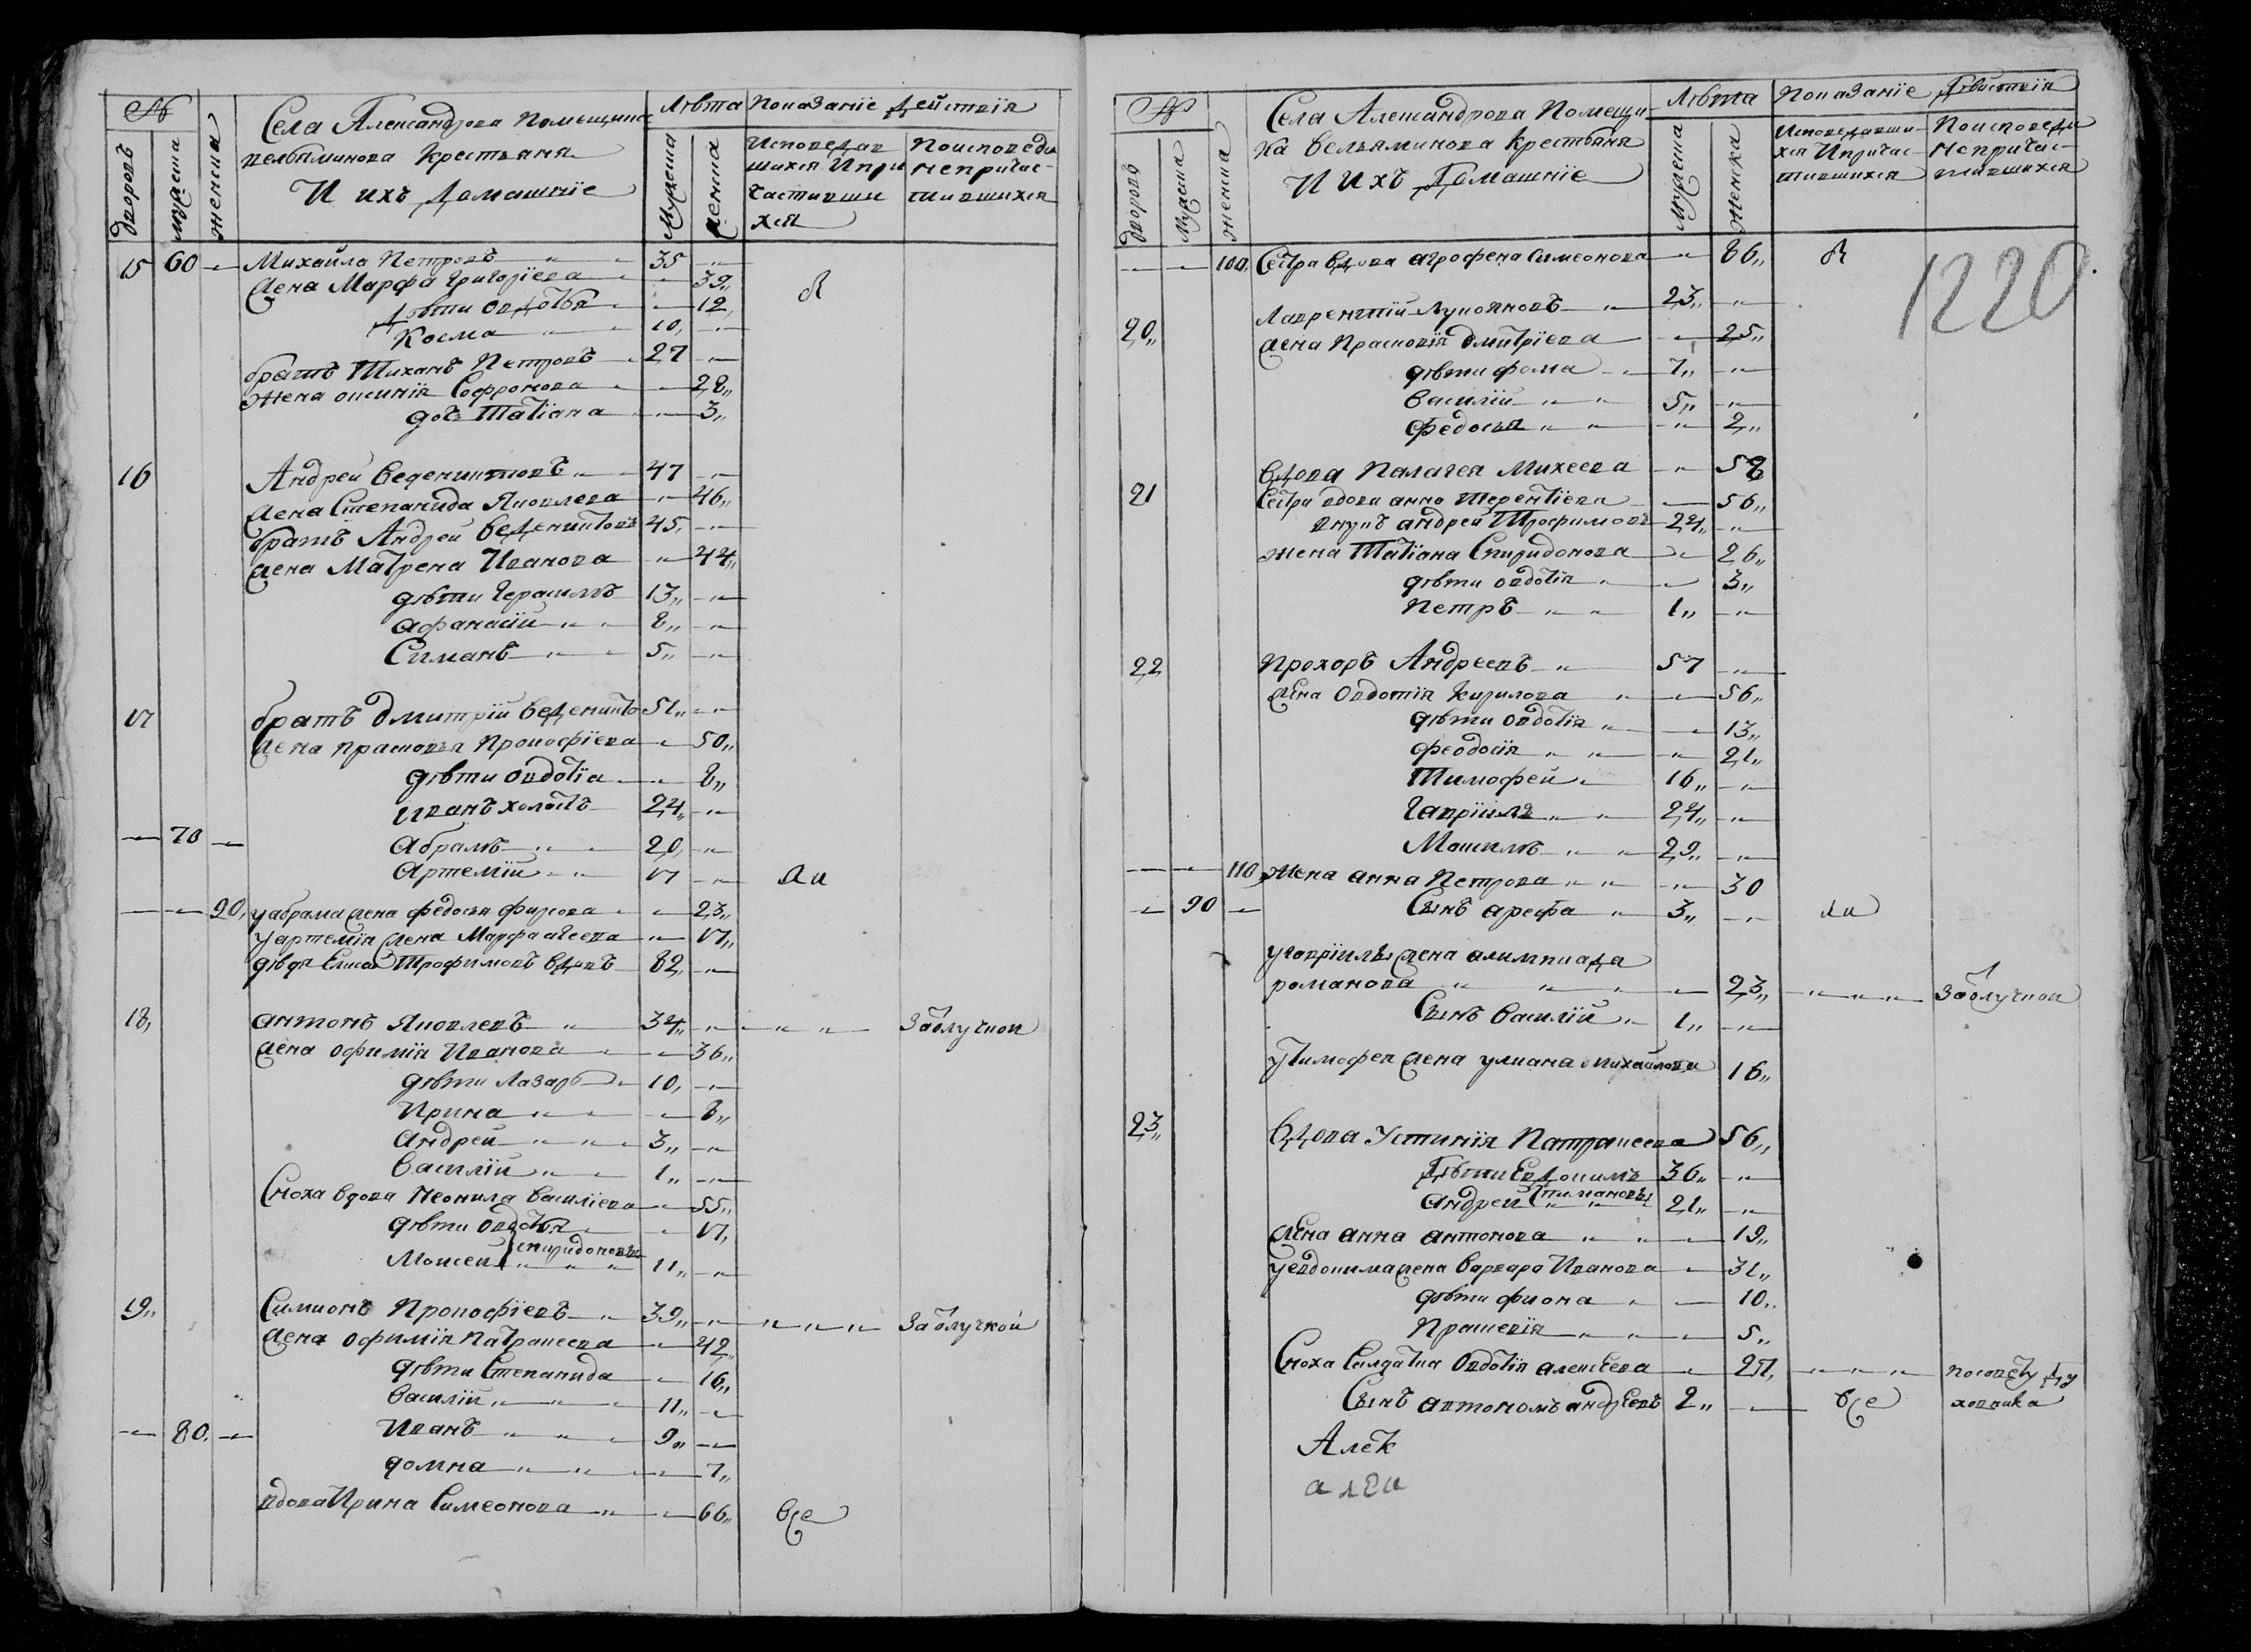 №
дворовъ
мужеска
женска
Села Александрова Помещика
вельяминова крестьяня
И ихъ Домашніе
Лѣта
Мужеска
женска
Показаніе Действія
Исповедав
шихся И при
частивши
хся
По исповеди
неприча-
стившихся
15 60 Михайла Петровъ 35
жена Марфа Григоріева 39
дѣти Овдотья 12
Косма 10
братъ Тиханъ Петровъ 27
жена оксинія Софронова 28
дочь Татіана 3
16 Андрей Веденинтовъ 47
жена Степанида Яковлева 46
братъ Андрей Веденинтовъ 45
жена Матрена Иванова 44
дѣти Герасимъ 13
афанасій 8
Симанъ 5
17 братъ дмитрій Веденинто 51
жена прасковья Прокофіева 50
дѣти овдотіа 8
иванъ холостъ 24
70 абрамъ 20
артемій 17 ли
90 у абрама жена федосья фирсова 23
у артемія жена Марфа 17
дядя Трофимовъ вдовъ 82
18 антонъ Яковлевъ 34 За отлучкой
жена офимія Иванова 36
дѣти Лазарь 10
Ирина 8
андрей 3
василій 1
Сноха вдова Неонила василіева 55
дѣти овдотья 17
Моисей спиридоновы 11
19 Симионъ Прокофіевъ 39 За отлучкой
жена офимія Патракеева 42
дѣти Степанида 16
василій 11
80 Иванъ 9
домна 7
вдова Ирина Симеонова 66 все
№
дворовъ
Мужеска
женска
Села Александрова Помещи-
ка вельяминова крестьяня
И Ихъ Домашніе
Лѣта
мужеска
женска
Показаніе Дѣйствія
Исповедавши-
хся И причас-
тившихся
По исповеди
неприча-
стившихся
1220
100 Сестра вдова агрофена Симеонова 86
20 Лаврентій Лукояновъ 23
жена Прасковія дмитріева 25
дѣти фома 7
василій 5
федосья 2
21 вдова Палагея Михеева 58
Сестра вдова анна терентіева 56
внукъ андрей Трофимовъ 24
жена Татіана Спиридонова 26
дѣти овдотія 3
Петръ 1
22 Прохоръ Андреевъ 57
жена овдотія кирилова 56
дѣти овдотія 13
феодосія 21
Тимофей 16
Гавріилъ 24
Максимъ 29
110 жена анна Петрова 30
90 Сынъ арефа 3 ли
у гавріилы жена алимпиада
романова 23 За отлучкой
Сынъ василій 1
у тимофея жена улиана михайлова 16
23 вдова Устинія Патракеева 56
Дѣти Евдокимъ 36
андрей 21
жена анна антонова 19
у евдокима жена варвара Иванова 31
дѣти фиона 10
Праскевія 5
Сноха Салдатка овдотія алексеева 27 по совету ду
Сынъ автономъ андреевъ 2 все ховника
Алек
але